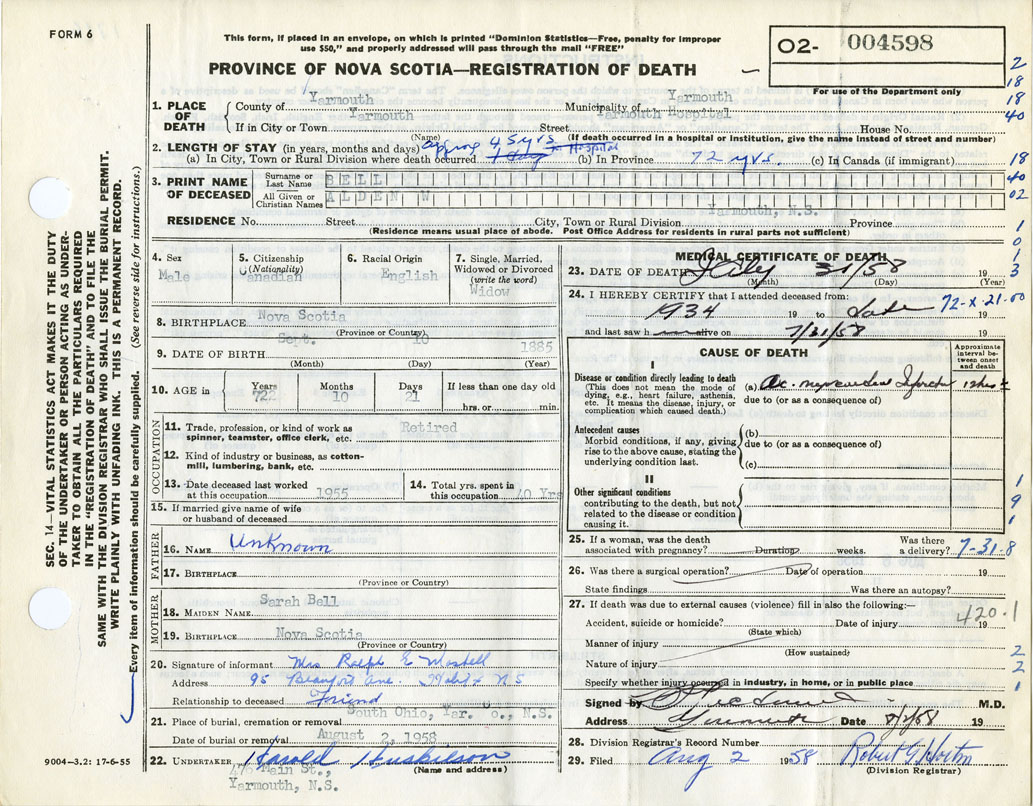 FORM 6
This form, if placed in an envelope, on which is printed "Dominion Statistics—Free, penalty for improper
use $50," and properly addressed will pass through the mail "FREE"
PROVINCE OF NOVA SCOTIA—REGISTRATION OF DEATH
O2- 004598
For use of the Department only
2
18
18
40
18
40
02
1
0
1
3
SEC. 14—VITAL STATISTICS ACT MAKES IT THE DUTY
OF THE UNDERTAKER OR PERSON ACTING AS UNDER-
TAKER TO OBTAIN ALL THE PARTICULARS REQUIRED
IN THE "REGISTRATION OF DEATH" AND TO FILE THE
SAME WITH THE DIVISION REGISTRAR WHO SHALL ISSUE THE BURIAL PERMIT.
WRITE PLAINLY WITH UNFADING INK. THIS IS A PERMANENT RECORD.
Every item of information should be carefully supplied. (See reverse side for instructions.)
1. PLACE OF DEATH County of Yarmouth Municipality of Yarmouth
If in City or Town Yarmouth Street Yarmouth Hospital House No.
(Name) (If death occurred in a hospital or institution, give the name instead of street and number)
2. LENGTH OF STAY (in years, months and days) 45 yrs Hospital
(a) In City, Town or Rural Division where death occurred (b) In Province 72 yrs. (c) In Canada (if immigrant)
3. PRINT NAME OF DECEASED
Surname or Last Name BELL
All Given or Christian Names ALDEN W
Yarmouth, N.S.
RESIDENCE No. Street City, Town or Rural Division Province
(Residence means usual place of abode. Post Office Address for residents in rural parts not sufficient)
4. Sex Male
5. Citizenship (Nationality) Canadian
6. Racial Origin English
7. Single, Married, Widowed or Divorced (write the word) Widow
8. BIRTHPLACE Nova Scotia
(Province or Country)
9. DATE OF BIRTH Sept. 10 1885
(Month) (Day) (Year)
10. AGE in Years 72 Months 10 Days 21 If less than one day old
hrs. or min.
OCCUPATION
11. Trade, profession, or kind of work as Retired
spinner, teamster, office clerk, etc.
12. Kind of industry or business, as cotton-
mill, lumbering, bank, etc.
13. Date deceased last worked at this occupation 1955
14. Total yrs. spent in this occupation 40 Yrs
15. If married give name of wife
or husband of deceased
FATHER
16. NAME Unknown
17. BIRTHPLACE
(Province or Country)
MOTHER
18. MAIDEN NAME Sarah Bell
19. BIRTHPLACE Nova Scotia
(Province or Country)
20. Signature of informant Mrs Ralph E
Address 95 Beaufort Ave. N S
Relationship to deceased Friend
21. Place of burial, cremation or removal South Ohio, Yar. Co., N.S.
Date of burial or removal August 2, 1958
22. UNDERTAKER Harold Huskilson
(Name and address)
476 Main St.,
Yarmouth, N.S.
9004—3.2: 17-6-55
MEDICAL CERTIFICATE OF DEATH
23. DATE OF DEATH July 31/58 19
(Month) (Day) (Year)
24. I HEREBY CERTIFY that I attended deceased from: 72-x-21-00
1934 19 to date 19
and last saw h alive on 7/31/58 19
CAUSE OF DEATH
Approximate interval between onset and death
I
Disease or condition directly leading to death
(This does not mean the mode of dying, e.g., heart failure, asthenia, etc. It means the disease, injury, or complication which caused death.)
(a) Ac. myocardial Infarct 12 hrs ±
due to (or as a consequence of)
Antecedent causes
Morbid conditions, if any, giving rise to the above cause, stating the underlying condition last.
(b)
due to (or as a consequence of)
(c)
II
Other significant conditions
contributing to the death, but not related to the disease or condition causing it.
1
9
1
25. If a woman, was the death Was there
associated with pregnancy? Duration weeks. a delivery? 7-31-8
26. Was there a surgical operation? Date of operation 19
State findings Was there an autopsy?
27. If death was due to external causes (violence) fill in also the following:—
420.1
Accident, suicide or homicide? Date of injury 19
(State which)
Manner of injury 2
(How sustained)
Nature of injury 2
Specify whether injury occurred in industry, in home, or in public place 1
Signed by M.D.
Address Yarmouth Date 8/1/58 19
28. Division Registrar's Record Number
29. Filed Aug 2 1958 Robert G Horton
(Division Registrar)